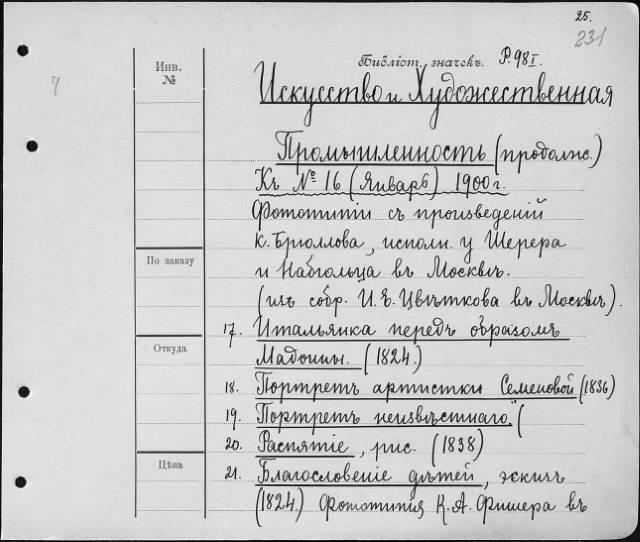 25.
231
7
Инв.
№
Библіот. значокъ. Р.98I.
Искусство и Художественная
Промышленность (продолж.)
Къ № 16 (Январь) 1900 г.
Фототипіи съ произведеній
К. Брюллова, исполн. у Шерера
и Набгольца въ Москвѣ.
(изъ собр. И. Е. Цвѣткова въ Москвѣ).
По заказу
17. Итальянка передъ образомъ
Мадонны. (1824.)
Откуда
18. Портретъ артистки Семеновой (1836)
19. Портретъ неизвѣстнаго. (
20. Распятіе, рис. (1838)
21. Благословеніе дѣтей, эскизъ
Цѣна
(1824.) Фототипія К. А. Фишера въ